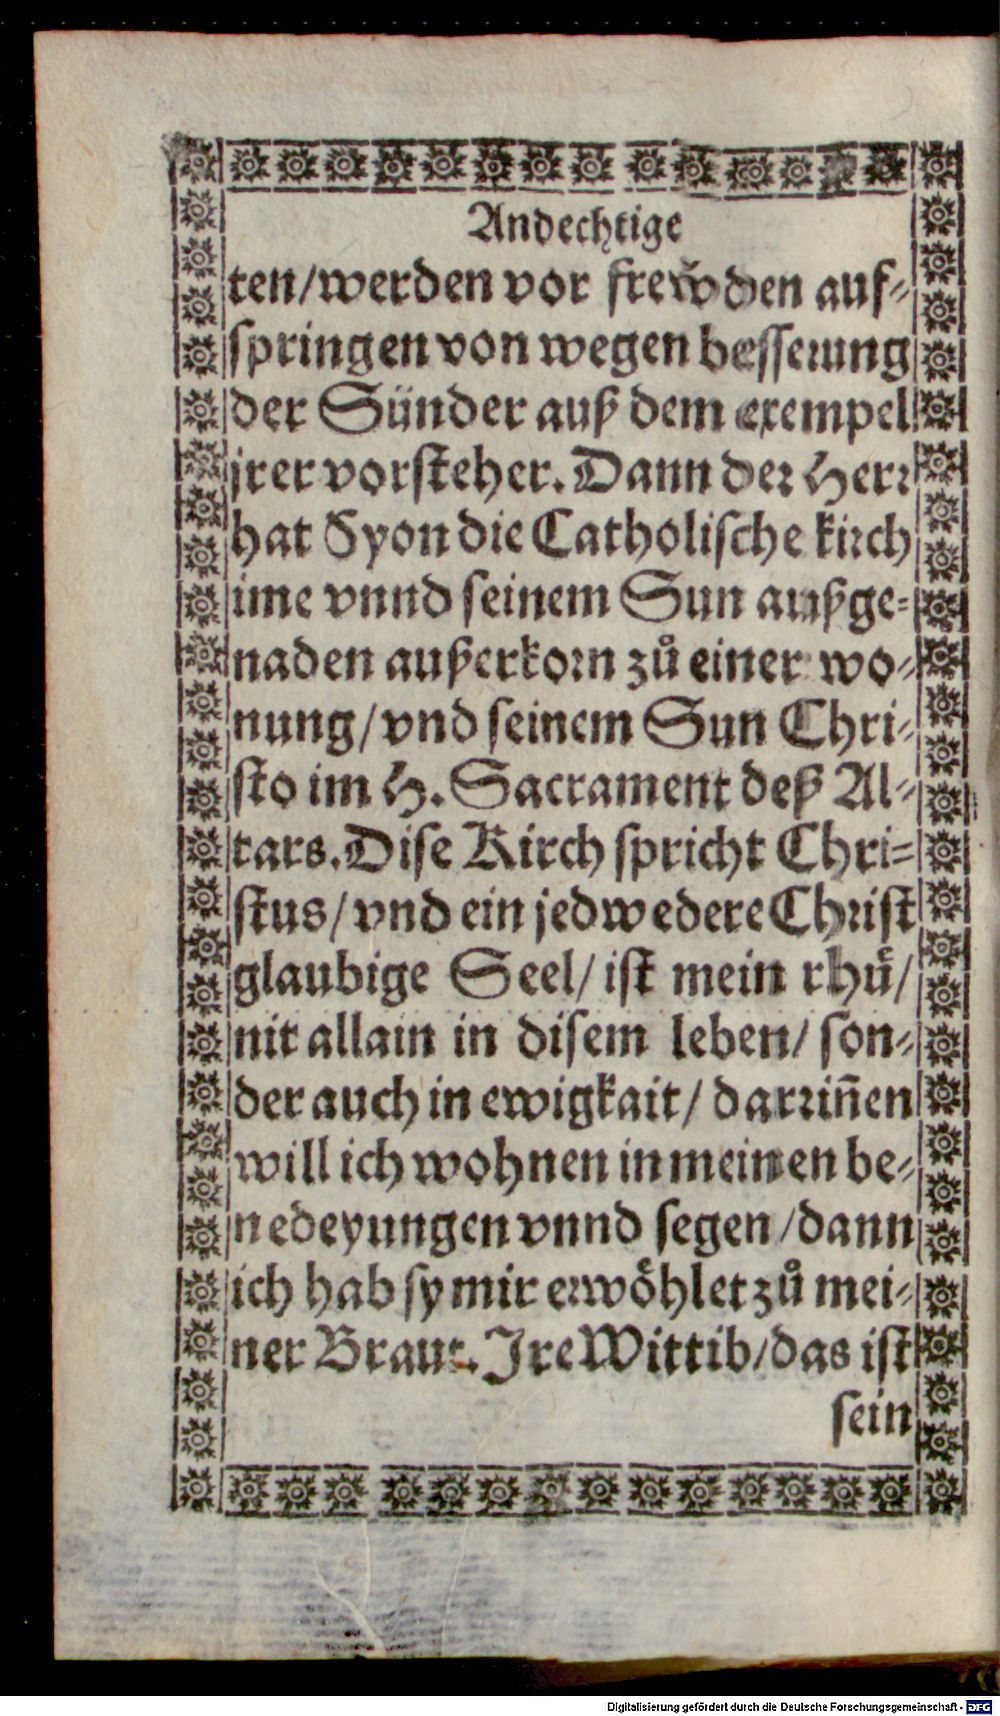 Andechtige
ten/werden vor frew̌den auf⸗
springen von wegen besserung
der Sünder auß dem exempel
jrer vorsteher. Dann der Herr
hat Syon die Catholische kirch
ime vnnd seinem Sun außge⸗
naden außerkorn zů einer wo⸗
nung/vnd seinem Sun Chri⸗
sto im H. Sacrament deß Al⸗
tars. Dise Kirch spricht Chri⸗
stus/vnd ein jedwedere Christ
glaubige Seel/ist mein rhuͤ/
nit allain in disem leben/son⸗
der auch in ewigkait/darriñen
will ich wohnen in meinen be⸗
nedeyungen vnnd segen/dann
ich hab sy mir erwoͤhlet zů mei⸗
ner Braut. Jre Wittib/das ist
sein
Digitalisierung gefördert durch die Deutsche Forschungsgemeinschaft - DFG